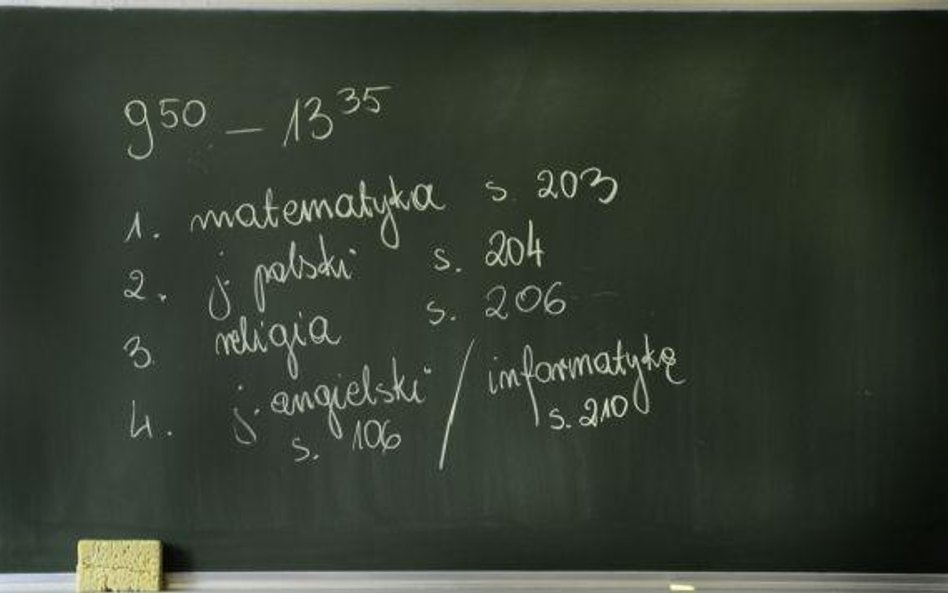 9⁵⁰ – 13³⁵
1. matematyka s. 203
2. j. polski s. 204
3. religia s. 206
4. j. angielski / informatykę
s. 106 s. 210